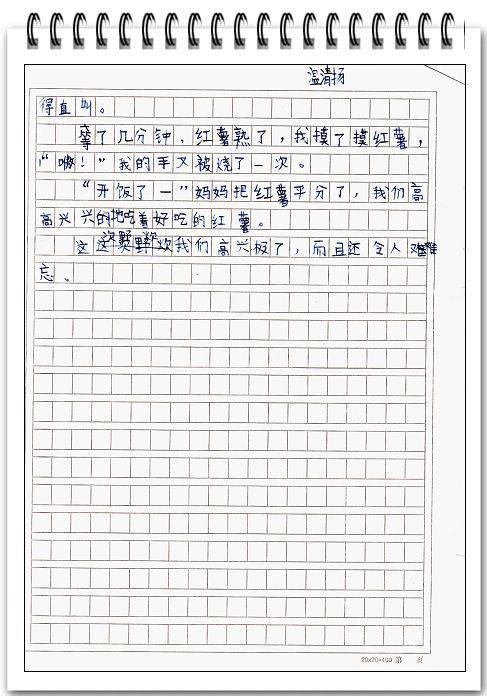 温清扬
得直叫。
等了几分钟，红薯熟了，我摸了摸红薯，
“嗷！”我的手又被烧了一次。
“开饭了—”妈妈把红薯平分了，我们高
高兴兴的地吃着好吃的红薯。
次野炊
这这次野炊我们高兴极了，而且还令人难
忘。
20×20=400 第 页